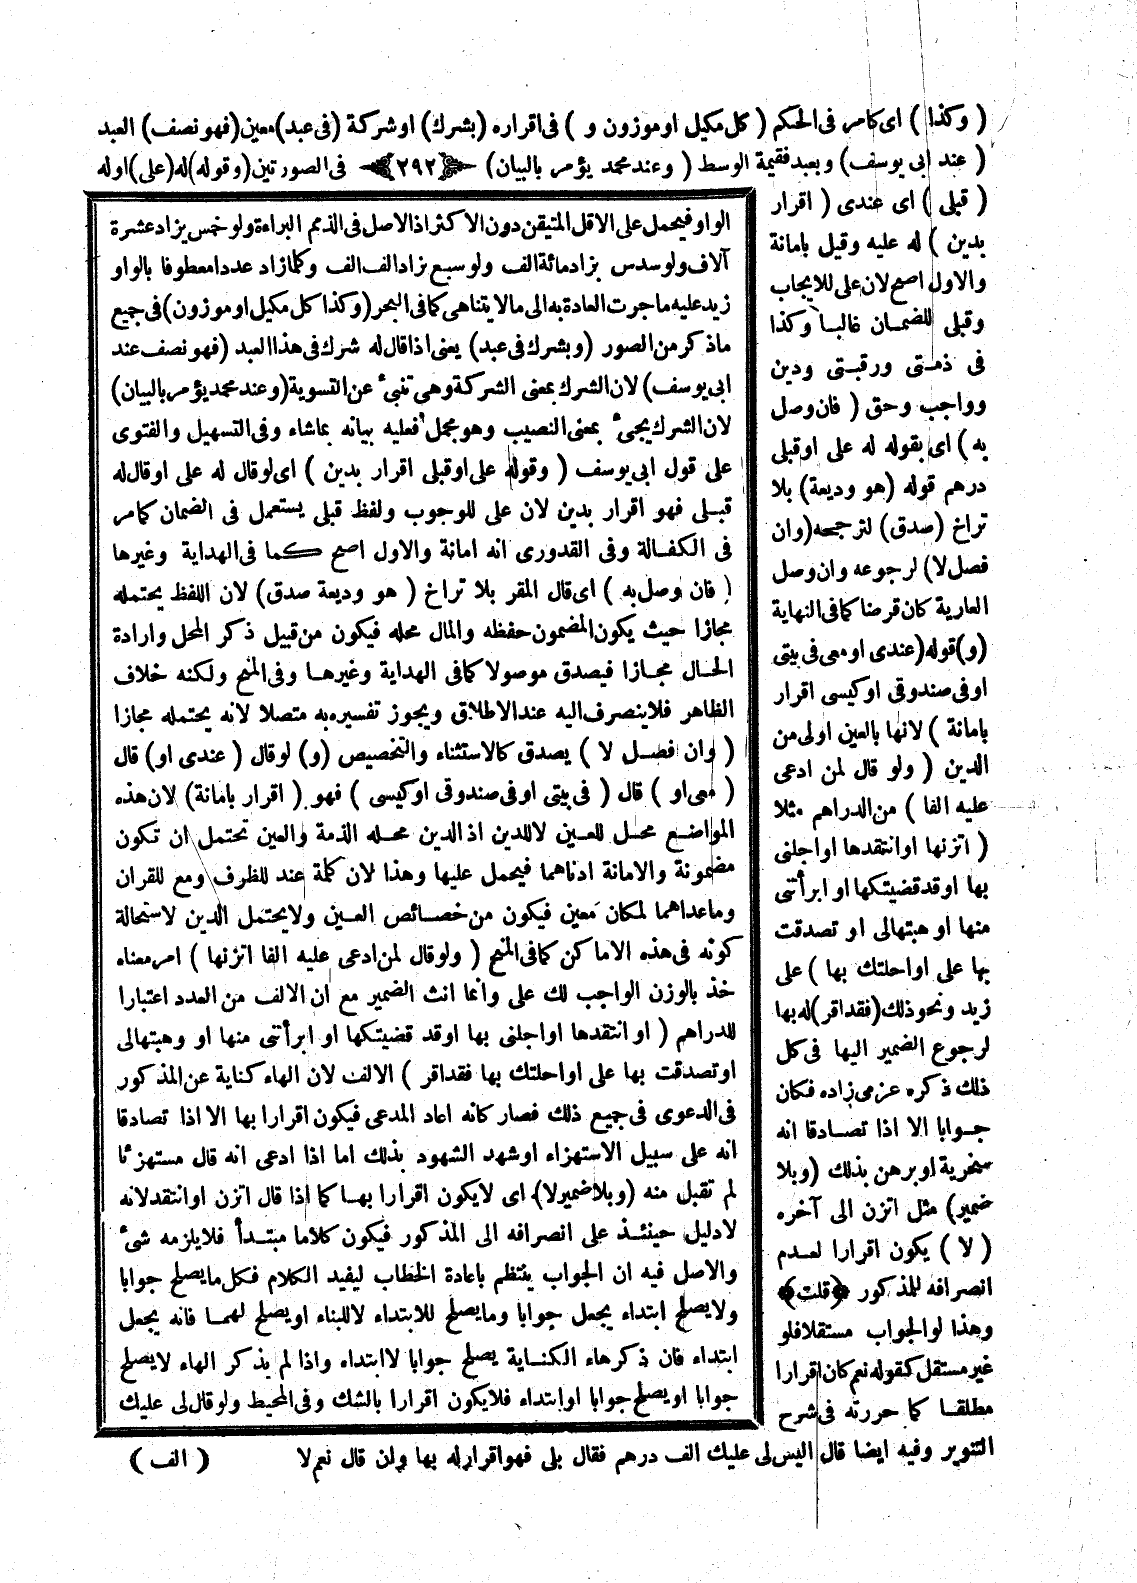 ( وكذا ) اى كامر فى الحكم ( كل مكيل او موزون و ) فى اقراره ( بشرك ) او شركة ( فى عبد ) معين ( فهو نصف ) العبد
( عند ابى يوسف ) وبعبد فقيمة الوسط ( وعند محمد يؤمر بالبيان ) ﴿ ٢٩٢ ﴾ فى الصورتين ( وقوله ) له ( على ) او له
( قبلى ) اى عندى ( اقرار
بدين ) له عليه وقيل بامانة
والاول اصح لان على للايجاب
وقبلى للضمان غالبا وكذا
فى ذمتى ورقبتى ودين
وواجب وحق ( فان وصل
به ) اى بقوله له على او قبلى
درهم قوله ( هو وديعة ) بلا
تراخ ( صدق ) لترجحه ( وان
فصل لا ) لرجوعه وان وصل
العارية كان قرضا كما فى النهاية
( و ) قوله ( عندى او معى فى بيتى
او فى صندوقى او كيسى اقرار
بامانة ) لانها بالعين اولى من
الدين ( ولو قال لمن ادعى
عليه الفا ) من الدراهم مثلا
( اتزنها او انتقدها او اجلنى
بها او قد قضيتكها او ابرأتنى
منها او هبتهالى او تصدقت
بها على او احلتك بها ) على
زيد ونحو ذلك ( فقد اقر ) له بها
لرجوع الضمير اليها فى كل
ذلك ذكره عزمى زاده فكان
جوابا الا اذا تصادقا انه
سخرية او برهن بذلك ( وبلا
ضمير ) مثل اتزن الى آخره
( لا ) يكون اقرارا لعدم
انصرافه للمذكور ﴿ قلت ﴾
وهذا لو الجواب مستقلا فلو
غير مستقل كقوله نعم كان اقرارا
مطلقا كما حررته فى شرح
التنوير وفيه ايضا قال اليس لى عليك الف درهم فقال بلى فهو اقرار له بها وان قال نعم لا
الواو فيحمل على الاقل المتيقن دون الاكثر اذ الاصل فى الذمم البراءة ولو خمس يزاد عشرة
آلاف ولو سدس يزاد مائة الف ولو سبع يزاد الف الف وكلما زاد عددا معطوفا بالواو
زيد عليه ما جرت العادة به الى ما لا يتناهى كما فى البحر ( وكذا كل مكيل او موزون ) فى جميع
ما ذكر من الصور ( وبشرك فى عبد ) يعنى اذا قال له شرك فى هذا العبد ( فهو نصف عند
ابى يوسف ) لان الشرك بمعنى الشركة وهى تنبئ عن التسوية ( وعند محمد يؤمر بالبيان )
لان الشرك يجئ بمعنى النصيب وهو مجمل فعليه بيانه بما شاء وفى التسهيل والفتوى
على قول ابى يوسف ( وقوله على او قبلى اقرار بدين ) اى لو قال له على او قال له
قبلى فهو اقرار بدين لان على للوجوب ولفظ قبلى يستعمل فى الضمان كامر
فى الكفالة وفى القدورى انه امانة والاول اصح كما فى الهداية وغيرها
( فان وصل به ) اى قال المقر بلا تراخ ( هو وديعة صدق ) لان اللفظ يحتمله
مجازا حيث يكون المضمون حفظه والمال محله فيكون من قبيل ذكر المحل وارادة
الحال مجازا فيصدق موصولا كما فى الهداية وغيرها وفى المنح ولكنه خلاف
الظاهر فلا ينصرف اليه عند الاطلاق ويجوز تفسيره به متصلا لانه يحتمله مجازا
( وان فصل لا ) يصدق كالاستثناء والتخصيص ( و ) لو قال ( عندى او ) قال
( معى او ) قال ( فى بيتى او فى صندوقى او كيسى ) فهو ( اقرار بامانة ) لان هذه
المواضع محل للعين لا للدين اذ الدين محله الذمة والعين تحتمل ان تكون
مضمونة والامانة ادناهما فيحمل عليها وهذا لان كلمة عند للظرف ومع للقران
وما عداهما لمكان معين فيكون من خصائص العين ولا يحتمل الدين لاستحالة
كونه فى هذه الاماكن كما فى المنح ( ولو قال لمن ادعى عليه الفا اتزنها ) امر معناه
خذ بالوزن الواجب لك على وانما انث الضمير مع ان الالف من العدد اعتبارا
للدراهم ( او انتقدها او اجلنى بها او قد قضيتكها او ابرأتنى منها او وهبتهالى
او تصدقت بها على او احلتك بها فقد اقر ) الالف لان الهاء كناية عن المذكور
فى الدعوى فى جميع ذلك فصار كانه اعاد المدعى فيكون اقرارا بها الا اذا تصادقا
انه على سبيل الاستهزاء او شهد الشهود بذلك اما اذا ادعى انه قال مستهزئا
لم تقبل منه ( وبلا ضمير لا ) اى لا يكون اقرارا بها كما اذا قال اتزن او انتقد لانه
لا دليل حينئذ على انصرافه الى المذكور فيكون كلاما مبتدأ فلا يلزمه شئ
والاصل فيه ان الجواب ينتظم باعادة الخطاب ليفيد الكلام فكل ما يصلح جوابا
ولا يصلح ابتداء يجعل جوابا وما يصلح للابتداء لا للبناء او يصلح لهما فانه يجعل
ابتداء فان ذكر هاء الكناية يصلح جوابا لا ابتداء واذا لم يذكر الهاء لا يصلح
جوابا او يصلح جوابا او ابتداء فلا يكون اقرارا بالشك وفى المحيط ولو قال لى عليك
( الف )